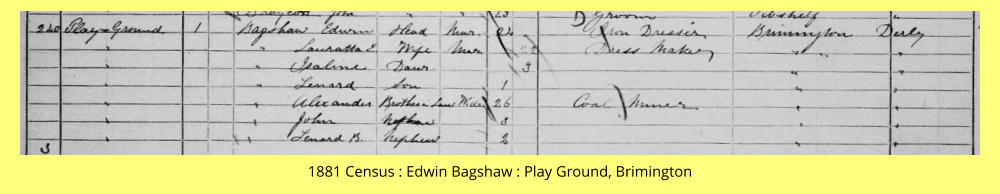 23 Groom Tibshelf "
240 Play Ground 1 Bagshaw Edwin Head Mar. 24 Iron Dresser Brimington Derby
" Lauratta E. Wife Mar 22 Dress Maker " "
" Isaline Daur. 3 " "
" Lenard Son 1 " "
" Alexander Brother in Law Widr 26 Coal Miner " "
" John Nephew 3 " "
" Lenard B. Nephew 2 " "
3
1881 Census : Edwin Bagshaw : Play Ground, Brimington